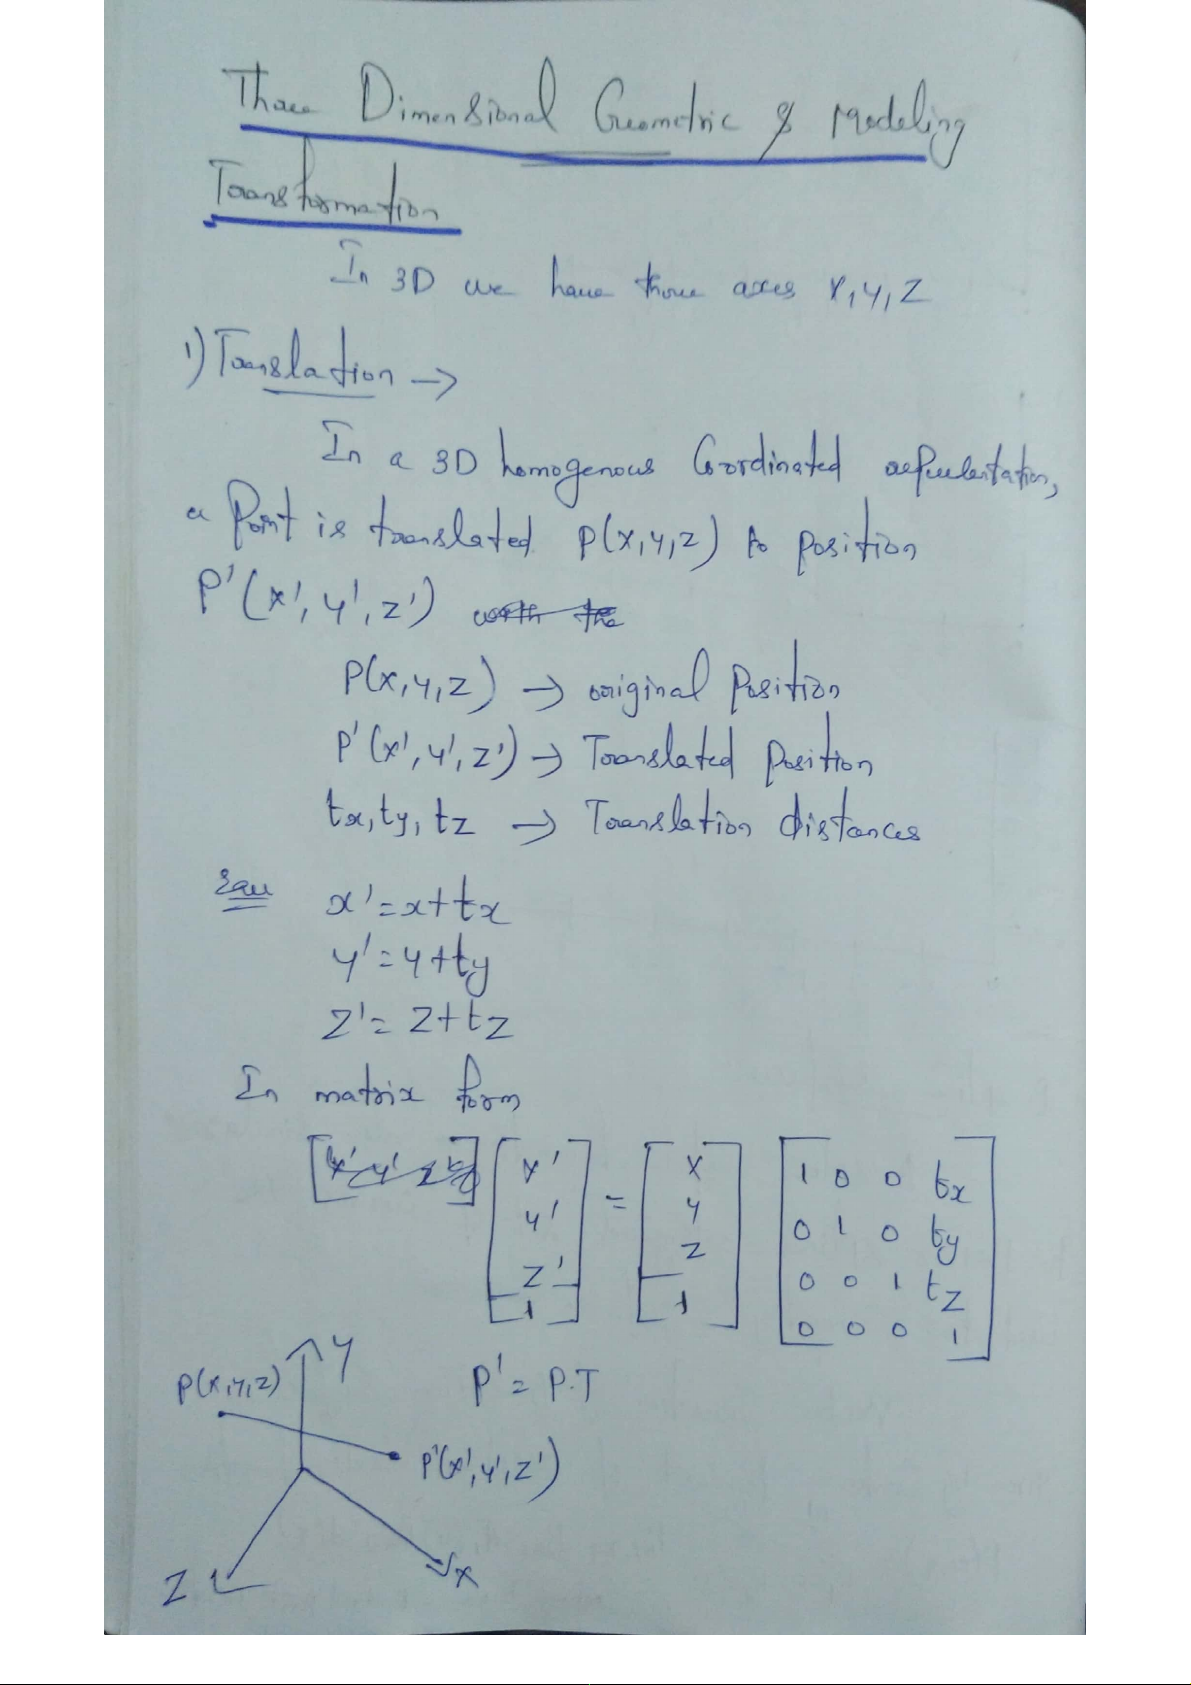 Three Dimensional Geometric & Modeling
Transformation
In 3D we have three axes X, Y, Z
1) Translation →
In a 3D homogenous Coordinated representation,
a Point is translated P(x, y, z) to position
P'(x', y', z') with the
P(x, y, z) → original Position
P'(x', y', z') → Translated Position
tx, ty, tz → Translation distances
x' = x + tx
y' = y + ty
z' = z + tz
In matrix form
[x' y' z'] [x' y' z' 1] = [x y z 1] [1 0 0 tx
0 1 0 ty
0 0 1 tz
0 0 0 1]
P' = P.T
Y
P(x, y, z)
P'(x', y', z')
Z
X